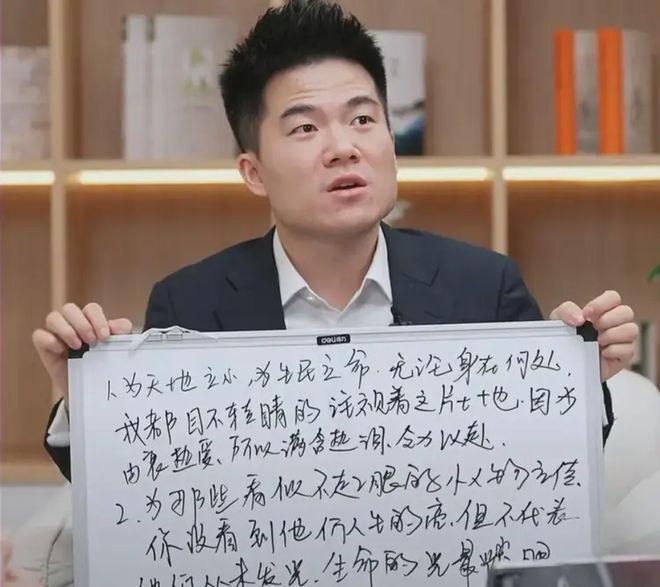 deli得力
1.为天地立心,为生民立命.无论身在何处,
我都目不转睛的注视着这片土地.因为
由衷热爱、所以满含热泪、全力以赴.
2.为那些看似不起眼的小人物立值.
你没看到他们人生的亮.但不代表
他们从未发光.生命的光最